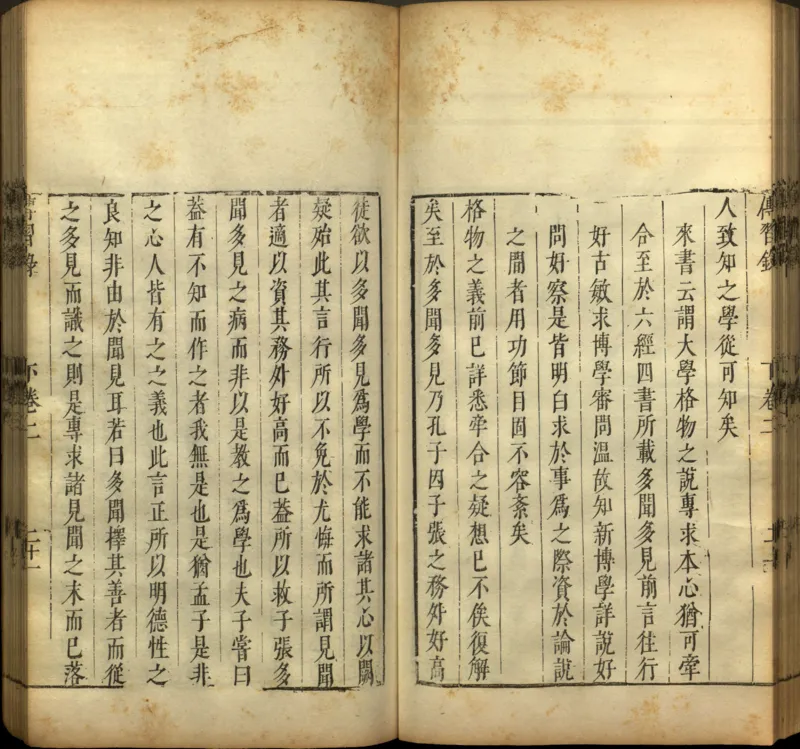 傳習錄 下卷二 二十
人致知之學從可知矣
來書云謂大學格物之說專求本心猶可牽
合至於六經四書所載多聞多見前言往行
好古敏求博學審問溫故知新博學詳說好
問好察是皆明白求於事爲之際資於論說
之間者用功節目固不容紊矣
格物之義前已詳悉牽合之疑想已不俟復解
矣至於多聞多見乃孔子因子張之務外好高
徒欲以多聞多見爲學而不能求諸其心以闕
疑殆此其言行所以不免於尤悔而所謂見聞
者適以資其務外好高而已蓋所以救子張多
聞多見之病而非以是教之爲學也夫子嘗曰
蓋有不知而作之者我無是也是猶孟子是非
之心人皆有之之義也此言正所以明德性之
良知非由於聞見耳若曰多聞擇其善者而從
之多見而識之則是專求諸見聞之末而已落
傳習錄 下卷二 二十一